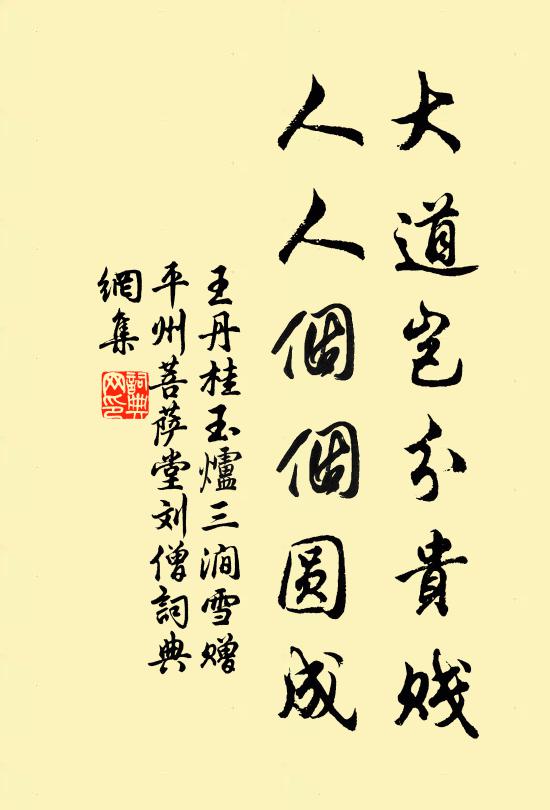 大道岂分貴賤
人人個個圆成
王丹桂玉爐三澗雪赠
平州菩萨堂刘僧詞典
網集
詞典
网印